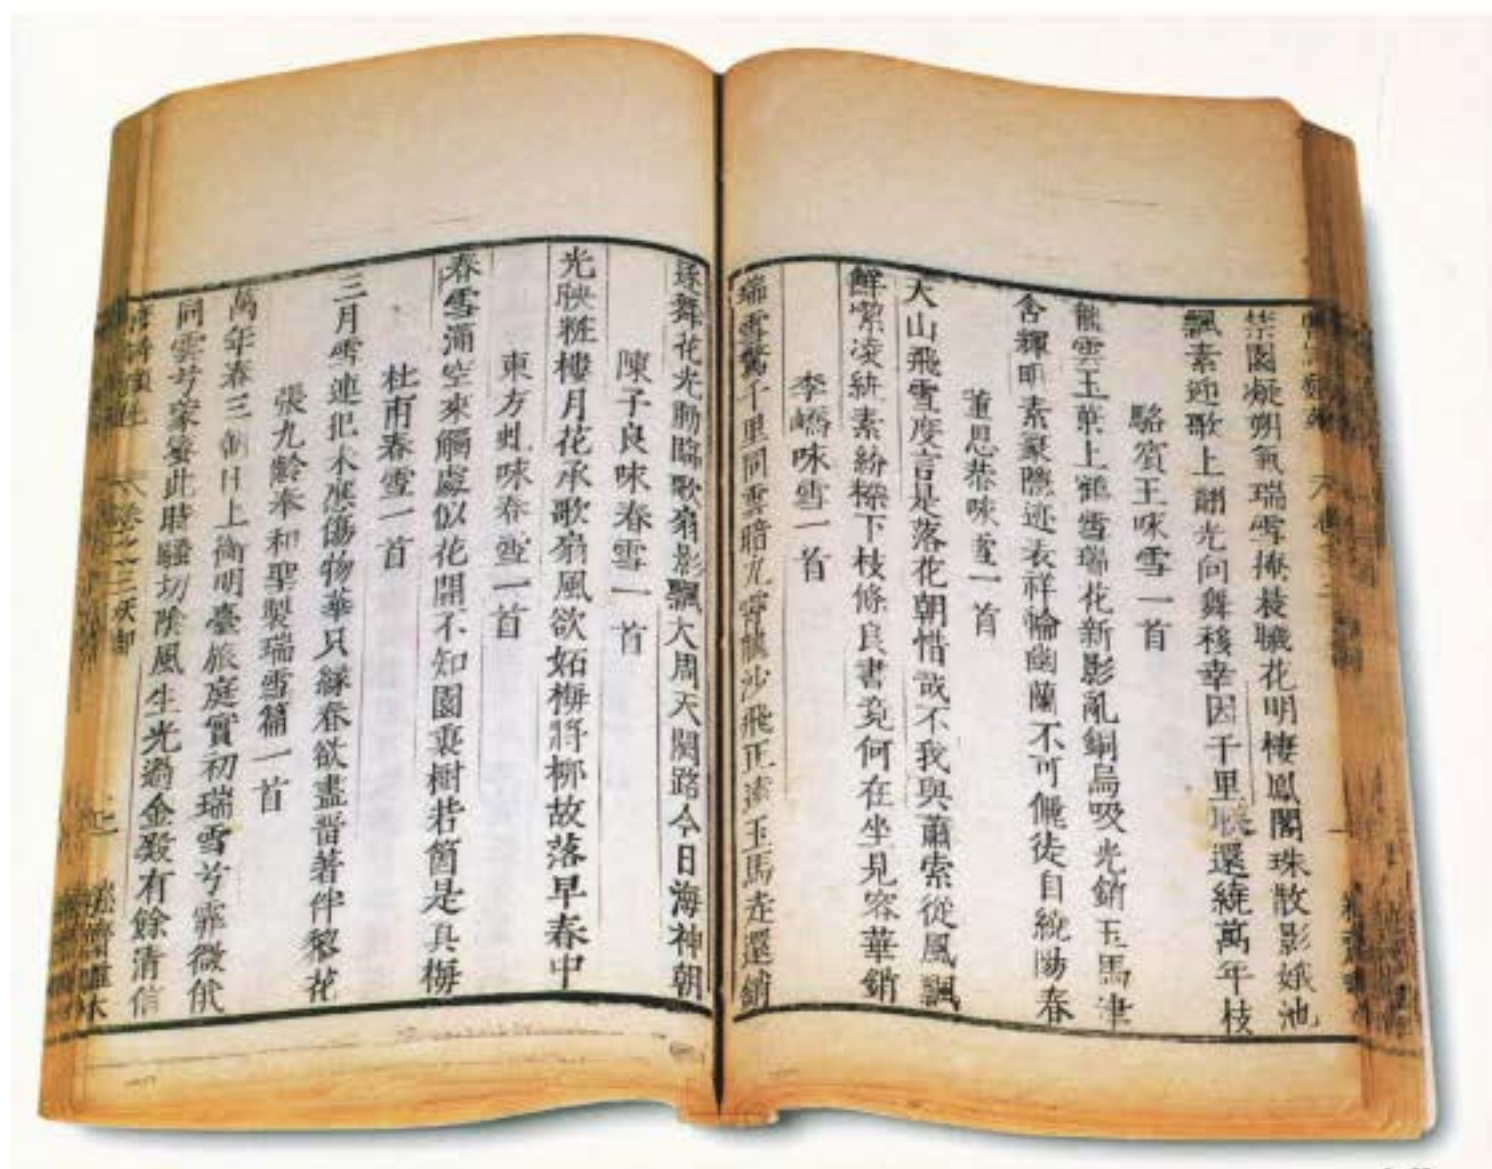 禁園凝朔氣瑞雪掩晨曦花明棲鳳閣珠散影娥池
飄素迎歌上翻光向舞移幸因千里映還繞萬年枝
駱賓王咏雪一首
龍雲玉葉上鶴雪瑞花新影亂銅烏吹光銷玉馬津
含輝明素篆隱迹表祥輪幽蘭不可儷徒自繞陽春
董思恭咏雪一首
天山飛雪度言是落花朝惜哉不我與蕭索從風飄
鮮潔凌紈素紛糅下枝條良書竟何在坐見容華銷
李嶠咏雪一首
瑞雪驚千里同雲暗九霄龍沙飛正遠玉馬走還銷
逐舞花光動臨歌扇影飄大周天闕路今日海神朝
陳子良咏春雪一首
光映粧樓月花承歌扇風欲妬梅將柳故落早春中
東方虬咏春雪一首
春雪滿空來觸處似花開不知園裏樹若箇是真梅
杜甫春雪一首
三月雪連夜未應傷物華只緣春欲盡留著伴梨花
張九齡奉和聖製瑞雪篇一首
萬年春三朝日上御明臺旅庭實初瑞雪兮霏微俄
同雲兮蒙密此時騷切陰風生先過金殿有餘清信
唐詩類苑 卷之三天部